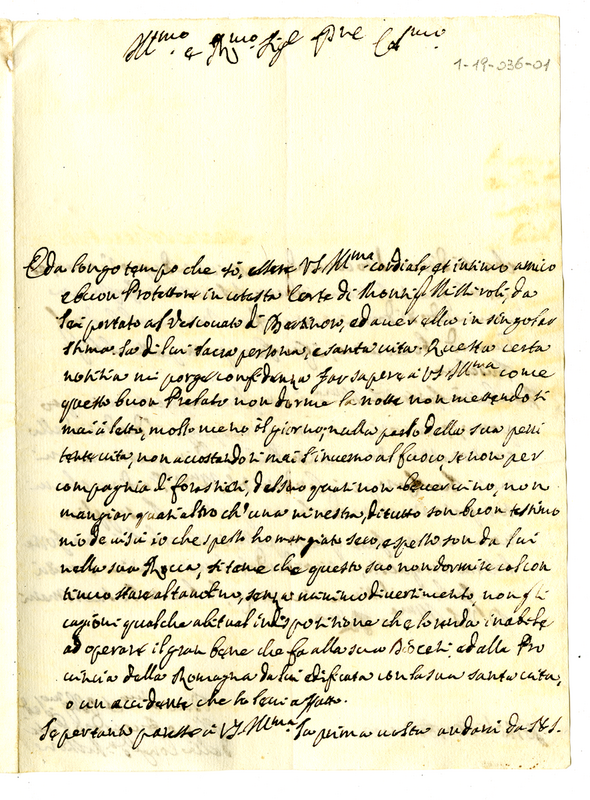 Ill.mo e R.mo Sig.e Pne Col.mo
1-19-036-01
È da longo tempo che sò, essere VS Ill.ma cordiale et intimo amico
e buon Protettore in cotesta Corte di Monsig.r Missiroli, da
lei portato al Vescovato di Bertinoro, ed aver ella in singolar
stima la di lui sacra persona, e santa vita. Questa certa
notitia mi porge confidenza far sapere à VS Ill.ma come
questo buon Prelato non dorme la notte non mettendosi
mai à letto, molto meno il giorno; nulla parlo della sua peni
tente vita, non accostandosi mai l'inverno al fuoco, se non per
compagnia di forastieri, del suo quasi non bever vino, non
mangiar quasi altro ch'una minestra, di tutto son buon testimo
nio de visu io che spesso ho mangiato seco, e spesso son da lui
nella sua Rocca; si teme che questo suo non dormire col con
tinuo stare al tavolino, senza minimo divertimento, non gli
cagioni qualche abitual indispositione che lo renda inabile
ad operare il gran bene che fa alla sua Diocesi, ed alla Pro
vincia della Romagna da lui edificata con la sua santa vita,
o un accidente che lo levi affatto.
Se per tanto paresse à VS Ill.ma la prima volta andarà da S.S.